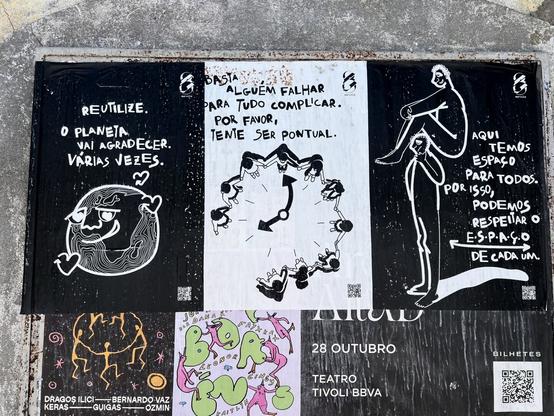 REUTILIZE.
O PLANETA
VAI AGRADECER.
VÁRIAS VEZES.
BASTA
ALGUÉM FALHAR
PARA TUDO COMPLICAR.
POR FAVOR,
TENTE SER PONTUAL.
AQUI
TEMOS
ESPAÇO
PARA TODOS.
POR ISSO,
PODEMOS
RESPEITAR O
E.S.P.A.Ç.O
DE CADA UM.
DRAGOȘ ILICI — BERNARDO VAZ
KERAS — GUIGAS — OZMIN
28 OUTUBRO
TEATRO
TIVOLI BBVA
BILHETES